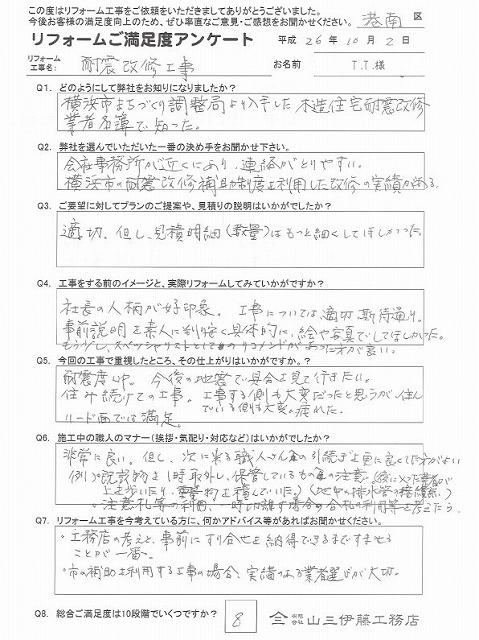 この度はリフォーム工事をご依頼をいただきましてありがとうございました。
今後お客様の満足度向上のため、ぜひ率直なご意見・ご感想をお聞かせください。
港南 区
リフォームご満足度アンケート
平成 26年 10月 2日
リフォーム工事名: 耐震改修工事
お名前 T.T.様
Q1. どのようにして弊社をお知りになりましたか?
横浜市まちづくり調整局より入手した木造住宅耐震改修
業者名簿で知った。
Q2. 弊社を選んでいただいた一番の決め手をお聞かせ下さい。
会社事務所が近くにあり、連絡がとりやすい。
横浜市の耐震改修補助制度を利用した改修の実績がある。
Q3. ご要望に対してプランのご提案や、見積りの説明はいかがでしたか?
適切、但し、見積明細(数量)はもっと細くしてほしかった。
Q4. 工事をする前のイメージと、実際リフォームしてみていかがですか?
社長の人柄が好印象。工事については適切、期待通り。
事前説明を素人に判り安く具体的に、絵や写真でしてほしかった。
もう少し、スペシャリストとしてのリコメンドがあった方が良い。
Q5. 今回の工事で重視したところ、その仕上がりはいかがですか。?
耐震度UP。今後の地震で具合を見て行きたい。
住み続けての工事。工事する側も大変だったと思うが、住し
ている側も大変。疲れた。
ハード面では満足。
Q6. 施工中の職人のマナー(挨拶・気配り・対応など)はいかがでしたか?
非常に良い。但し、次に来る職人さん
例)既設物を1時取外し、保管している
上を歩いたり、重量物を積していた。)
・注意札等の利用、一時的に離す場合の合札の利用等を考えたら。
Q7. リフォーム工事を今考えている方に、何かアドバイス等があればお聞かせください。
・工務店の考えと、事前にすり合せを納得できるまですませる
ことが一番。
・市の補助を利用する工事の場合、実績のある業者選びが大切。
Q8. 総合ご満足度は10段階でいくつですか?
8
有限会社 山三伊藤工務店